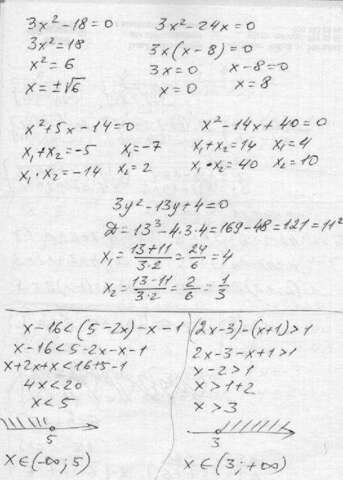 3x² - 18 = 0
3x² = 18
x² = 6
x = ±√6
3x² - 24x = 0
3x(x - 8) = 0
3x = 0 x - 8 = 0
x = 0 x = 8
x² + 5x - 14 = 0
x₁ + x₂ = -5 x₁ = -7
x₁ · x₂ = -14 x₂ = 2
x² - 14x + 40 = 0
x₁ + x₂ = 14 x₁ = 4
x₁ · x₂ = 40 x₂ = 10
3y² - 13y + 4 = 0
Д = 13³ - 4·3·4 = 169 - 48 = 121 = 11²
x₁ = (13+11)/(3·2) = 24/6 = 4
x₂ = (13-11)/(3·2) = 2/6 = 1/3
x - 16 < (5 - 2x) - x - 1
x - 16 < 5 - 2x - x - 1
x + 2x + x < 16 + 5 - 1
4x < 20
x < 5
5
x ∈ (-∞; 5)
(2x - 3) - (x + 1) > 1
2x - 3 - x + 1 > 1
x - 2 > 1
x > 1 + 2
x > 3
3
x ∈ (3; +∞)